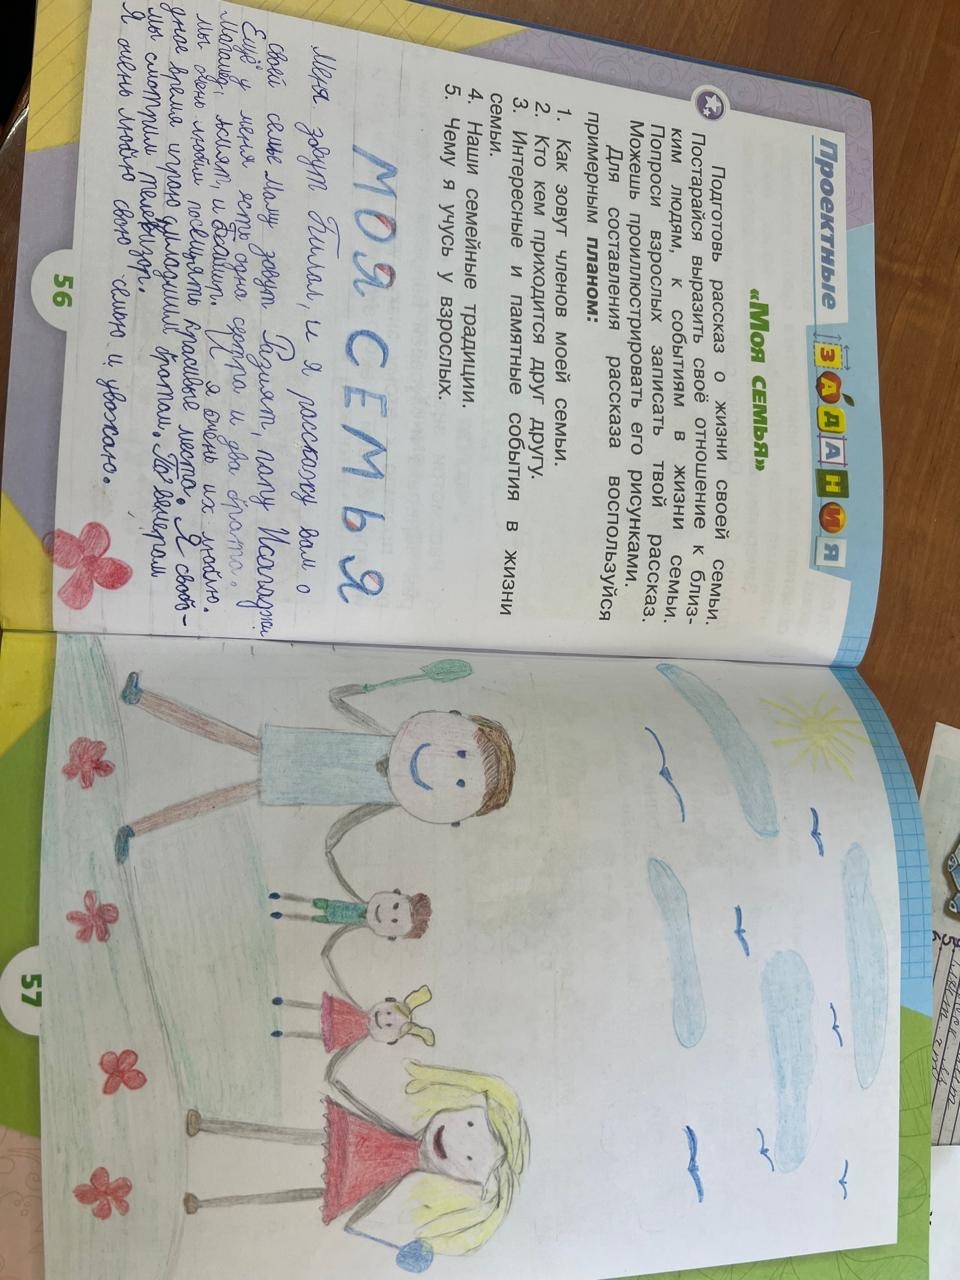 Проектные ЗАДАНИЯ
«Моя семья»
Подготовь рассказ о жизни своей семьи.
Постарайся выразить своё отношение к близ-
ким людям, к событиям в жизни семьи.
Попроси взрослых записать твой рассказ.
Можешь проиллюстрировать его рисунками.
Для составления рассказа воспользуйся
примерным планом:
1. Как зовут членов моей семьи.
2. Кто кем приходится друг другу.
3. Интересные и памятные события в жизни
семьи.
4. Наши семейные традиции.
5. Чему я учусь у взрослых.
МОЯ СЕМЬЯ
Меня зовут Билал, и я расскажу вам о
своей семье Маму зовут папу
Ещё у меня есть одна сестра и два брата.
и Я очень их люблю.
мы очень любим посещять красивые места. Я свобо-
дное время играю младшим братом. По вечерам
мы смотрим телевизор.
Я очень люблю свою семью и уважаю.
56
57